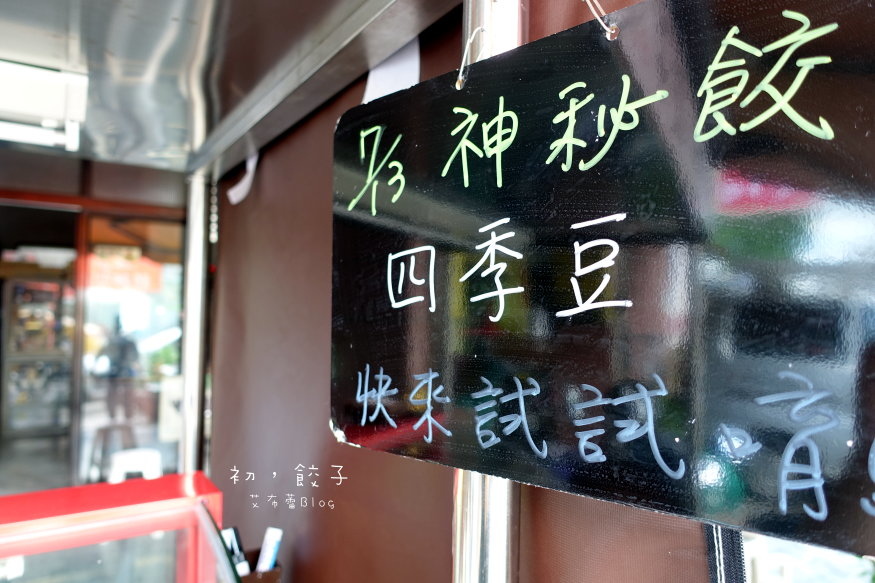 7/13 神秘餃
四季豆
快來試試唷
初,餃子
艾布蕾Blog